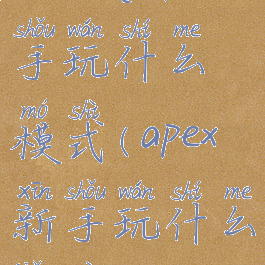 shǒu wán shí me
手玩什么
mó shì
模式(apex
xīn shǒu wán shí me
新手玩什么